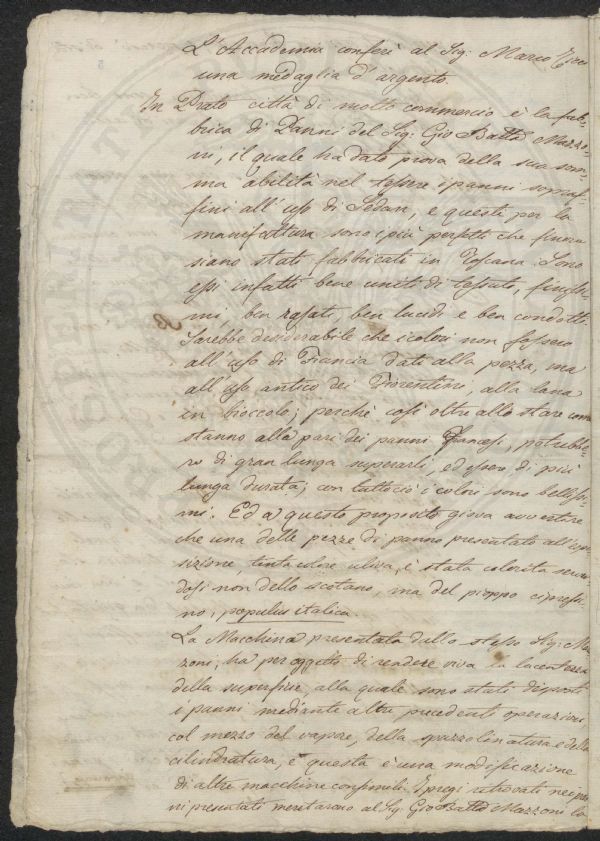 L'Accademia conferì al Sig: Marco
una medaglia d'argento.
In Prato città di molto commercio è la fab=
brica di Panni del Sig: Gio Batta Mazzo=
ni, il quale ha dato prova della sua som=
ma abilità nel tessere i panni sopraf=
fini all'uso di Sedan, e questi per la
manifattura sono i più perfetti che finora
siano stati fabbricati in Toscana. Sono
essi infatti bene uniti di tessuto, finissi=
mi, ben rasati, ben lucidi e ben condotti.
Sarebbe desiderabile che i colori non fossero
all'uso di Francia dati alla pezza, ma
all'uso antico dei Fiorentini, alla lana
in bioccolo; perchè così oltre allo stare come
stanno alla pari dei panni Francesi, potrebbe=
ro di gran lunga superarli, ed essere di più
lunga durata; con tuttociò i colori sono bellissi=
mi. Ed a questo proposito giova avvertire
che una delle pezze di panno presentate all'espo
sizione tinta colore uliva, è stata colorita serven
dosi non dello scotano, ma del pioppo cipressi=
no, populus italica.
La Macchina presentata dallo stesso Sig: Ma
zzoni, ha per oggetto di rendere viva la lucentezza
della superficie, alla quale sono stati disposti
i panni mediante altre precedenti operazioni
col mezzo del vapore, della spazzolinatura e della
cilindratura, e questa è una modificazione
di altre macchine consimili. I pregi ritrovati nei pan
ni presentati meritarono al Sig: Gio Batta Mazzoni la